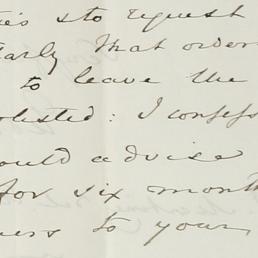 to request
early that order
to leave the
olested: I confess
ould advise
for six month
to your